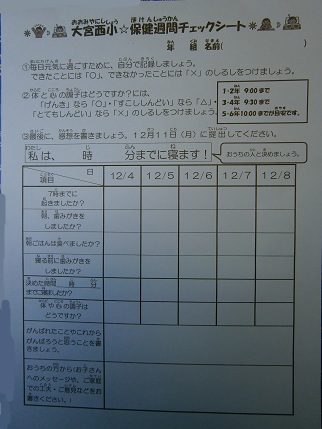 大宮西小☆保健週間チェックシート
年 組 名前( )
①毎日元気に過ごすために、自分で記録しましょう。
できたことには「○」、できなかったことには「×」のしるしをつけましょう。
②体と心の調子はどうですか?には、
「げんき」なら「○」・「すこししんどい」なら「△」・
「とてもしんどい」なら「×」のしるしをつけましょう。
1・2年 9:00まで
3・4年 9:30まで
5・6年10:00までが目安です。
③最後に、感想を書きましょう。12月11日(月)に提出してください。
私は、 時 分までに寝ます!
おうちの人と決めましょう。
項目 日 12/4 12/5 12/6 12/7 12/8
7時までに
起きましたか?
朝、歯みがきを
しましたか?
朝ごはんは食べましたか?
寝る前に歯みがきを
しましたか?
決めた時間 時 分
までに寝ましたか?
体や心の調子は
どうですか?
がんばれたことやこれから
がんばろうと思うことを書
きましょう。
おうちの方から(お子さん
へのメッセージや、ご家庭
での工夫・ご意見などをお
書きください。)